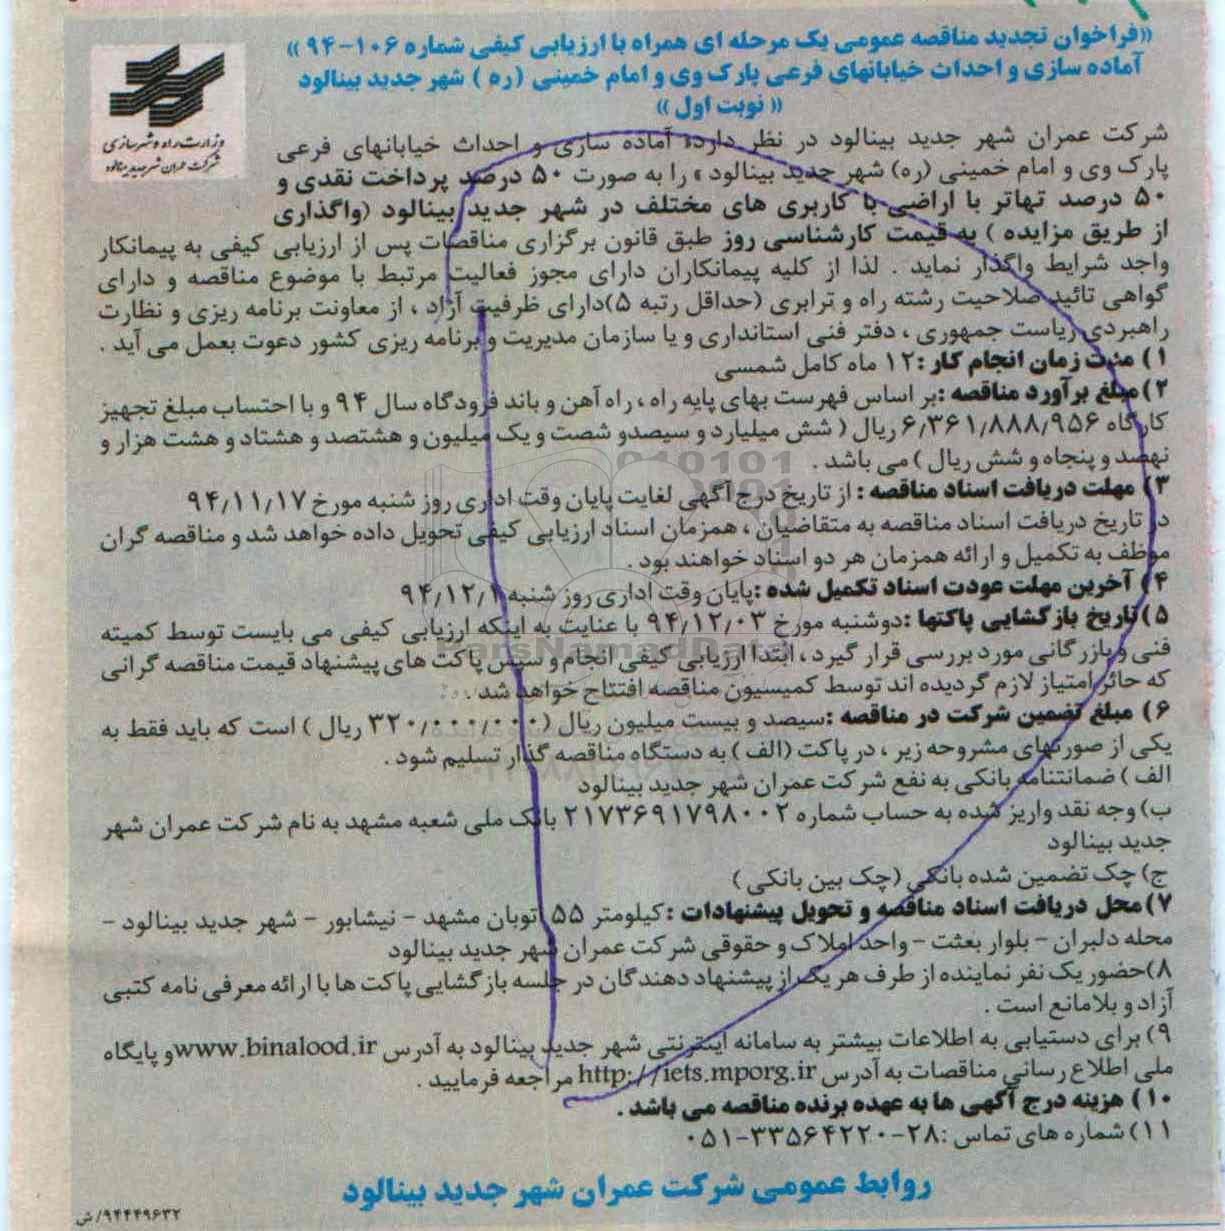 «فراخوان تجدید مناقصه عمومی یک مرحله ای همراه با ارزیابی کیفی شماره ۱۰۶-۹۴»
آماده سازی و احداث خیابانهای فرعی پارک وی و امام خمینی (ره) شهر جدید بینالود
«نوبت اول»
وزارت راه و شهرسازی
شرکت عمران شهر جدید بینالود
شرکت عمران شهر جدید بینالود در نظر دارد« آماده سازی و احداث خیابانهای فرعی
پارک وی و امام خمینی (ره) شهر جدید بینالود » را به صورت ۵۰ درصد پرداخت نقدی و
۵۰ درصد تهاتر با اراضی با کاربری های مختلف در شهر جدید بینالود (واگذاری
از طریق مزایده ) به قیمت کارشناسی روز طبق قانون برگزاری مناقصات پس از ارزیابی کیفی به پیمانکار
واجد شرایط واگذار نماید . لذا از کلیه پیمانکاران دارای مجوز فعالیت مرتبط با موضوع مناقصه و دارای
گواهی تائید صلاحیت رشته راه و ترابری (حداقل رتبه ۵)دارای ظرفیت آزاد ، از معاونت برنامه ریزی و نظارت
راهبردی ریاست جمهوری ، دفتر فنی استانداری و یا سازمان مدیریت و برنامه ریزی کشور دعوت بعمل می آید .
۱) مدت زمان انجام کار :۱۲ ماه کامل شمسی
۲) مبلغ برآورد مناقصه :بر اساس فهرست بهای پایه راه ، راه آهن و باند فرودگاه سال ۹۴ و با احتساب مبلغ تجهیز
کارگاه ۶/۳۶۱/۸۸۸/۹۵۶ ریال ( شش میلیارد و سیصدو شصت و یک میلیون و هشتصد و هشتاد و هشت هزار و
نهصد و پنجاه و شش ریال ) می باشد .
۳) مهلت دریافت اسناد مناقصه : از تاریخ درج آگهی لغایت پایان وقت اداری روز شنبه مورخ ۹۴/۱۱/۱۷
در تاریخ دریافت اسناد مناقصه به متقاضیان ، همزمان اسناد ارزیابی کیفی تحویل داده خواهد شد و مناقصه گران
موظف به تکمیل و ارائه همزمان هر دو اسناد خواهند بود .
۴) آخرین مهلت عودت اسناد تکمیل شده :پایان وقت اداری روز شنبه ۹۴/۱۲/۱
۵)تاریخ بازگشایی پاکتها :دوشنبه مورخ ۹۴/۱۲/۰۳ با عنایت به اینکه ارزیابی کیفی می بایست توسط کمیته
فنی و بازرگانی مورد بررسی قرار گیرد ، ابتدا ارزیابی کیفی انجام و سپس پاکت های پیشنهاد قیمت مناقصه گرانی
که حائز امتیاز لازم گردیده اند توسط کمیسیون مناقصه افتتاح خواهد شد .
۶) مبلغ تضمین شرکت در مناقصه :سیصد و بیست میلیون ریال (۳۲۰/۰۰۰/۰۰۰ ریال ) است که باید فقط به
یکی از صورتهای مشروحه زیر ، در پاکت (الف ) به دستگاه مناقصه گذار تسلیم شود .
الف ) ضمانتنامه بانکی به نفع شرکت عمران شهر جدید بینالود
ب) وجه نقد واریز شده به حساب شماره ۲۱۷۳۶۹۱۷۹۸۰۰۲ بانک ملی شعبه مشهد به نام شرکت عمران شهر
جدید بینالود
ج) چک تضمین شده بانکی (چک بین بانکی )
۷)محل دریافت اسناد مناقصه و تحویل پیشنهادات :کیلومتر ۵۵ اتوبان مشهد - نیشابور - شهر جدید بینالود -
محله دلبران - بلوار بعثت - واحد املاک و حقوقی شرکت عمران شهر جدید بینالود
۸)حضور یک نفر نماینده از طرف هر یک از پیشنهاد دهندگان در جلسه بازگشایی پاکت ها با ارائه معرفی نامه کتبی
آزاد و بلامانع است .
۹) برای دستیابی به اطلاعات بیشتر به سامانه اینترنتی شهر جدید بینالود به آدرس www.binalood.ir و پایگاه
ملی اطلاع رسانی مناقصات به آدرس http://iets.mporg.ir مراجعه فرمایید .
۱۰) هزینه درج آگهی ها به عهده برنده مناقصه می باشد .
۱۱) شماره های تماس :۲۸-۳۳۵۶۴۲۲۰-۰۵۱
روابط عمومی شرکت عمران شهر جدید بینالود
۹۴۴۴۹۶۳۲/ش
ParsNamadData